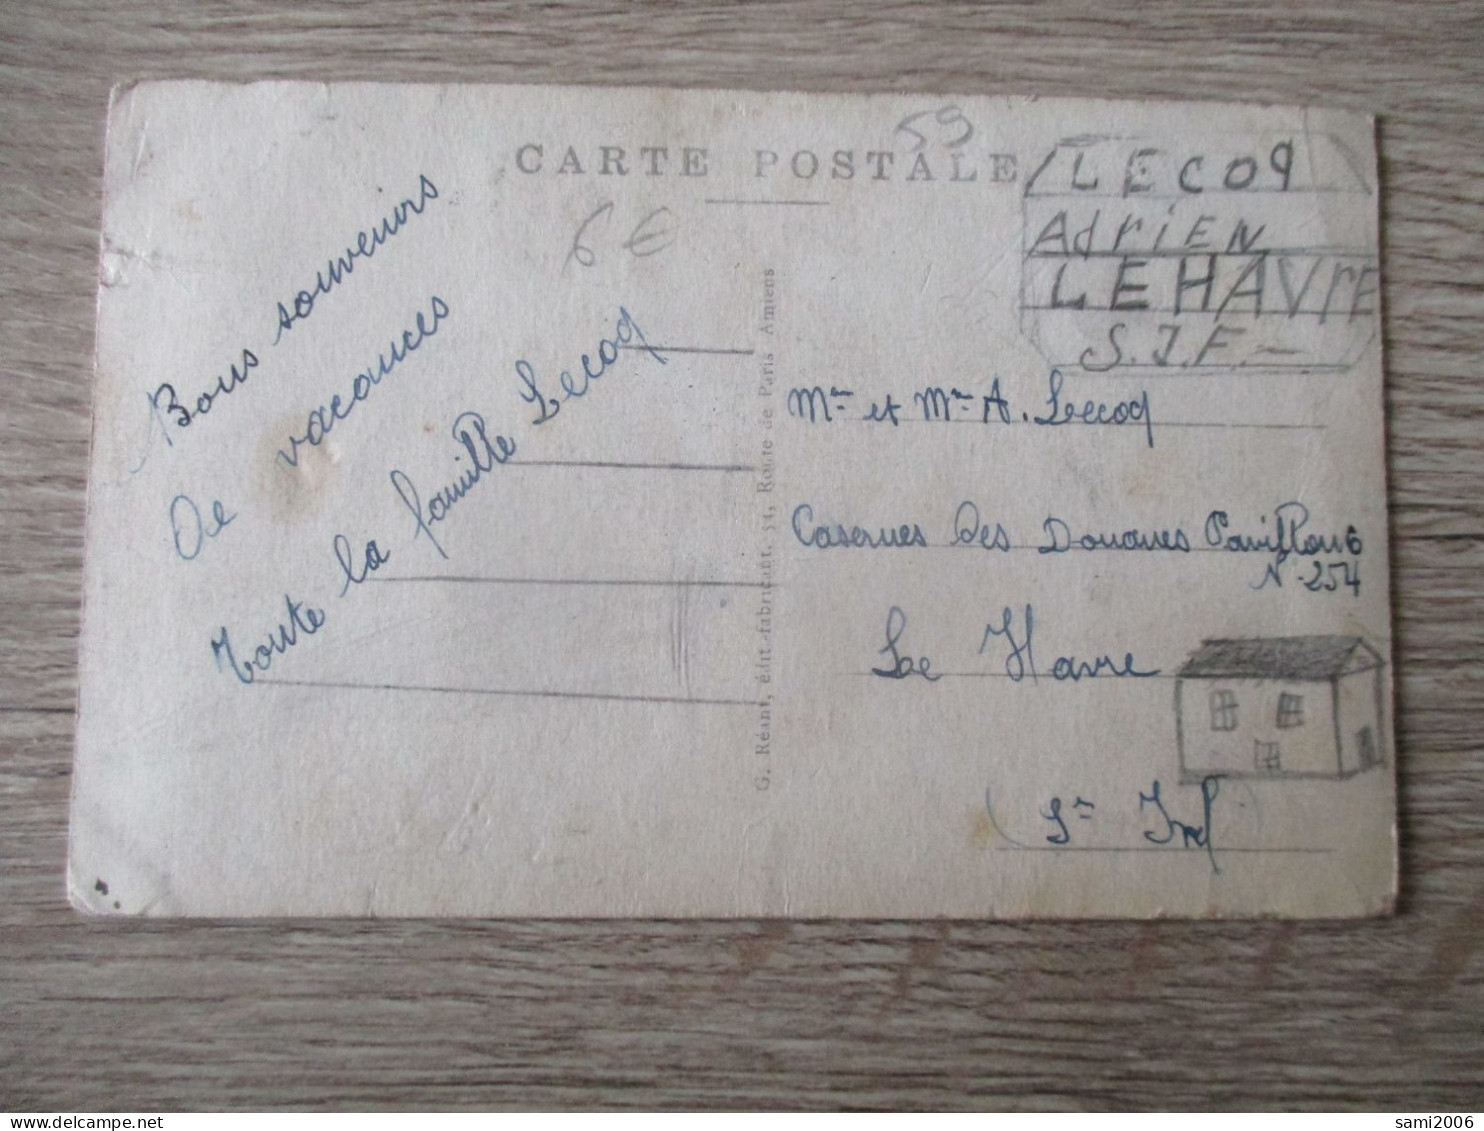 CARTE POSTALE
59
6 €
LECOQ
AdriEN
LEHAVrE
S.I.F.-
Bons souvenirs
De vacances
Toute la famille Lecoq
G. Réant, édit.-fabricant, 51, Route de Paris Amiens
Mr et Mme A. Lecoq
Casernes Des Douanes Pavillon 6
N° 254
Le Havre
Sne Inf
sami2006